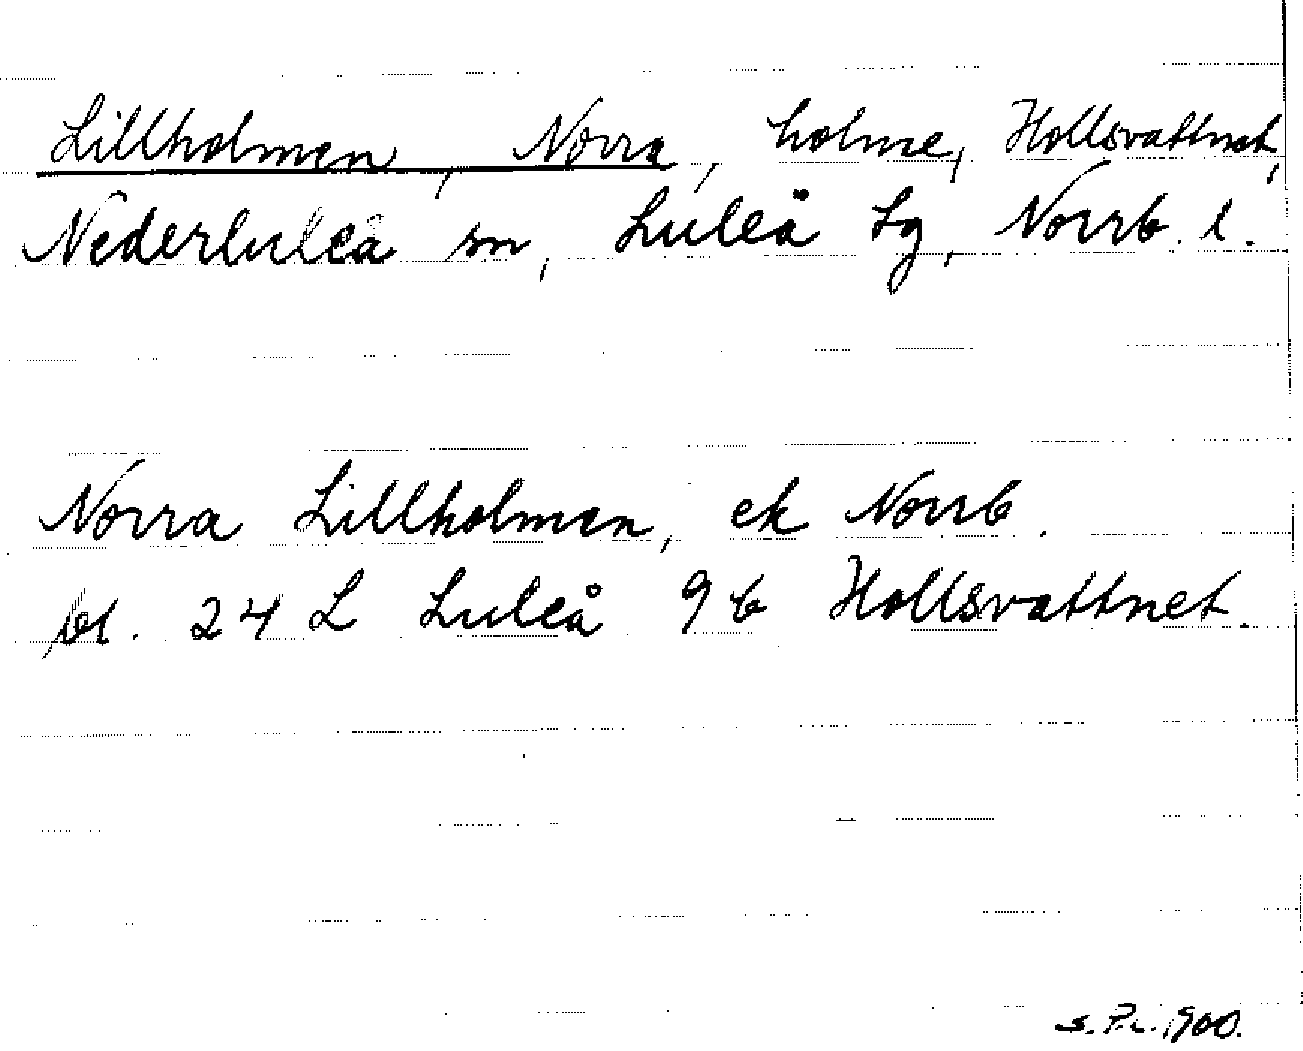 Lillholmen, Norra, holme, Hollsvattnet,
Nederluleå sn, Luleå tg, Norrb. l.
Norra Lillholmen, ek Norrb.
bl. 24 L Luleå 9 b Hollsvattnet.
1900.